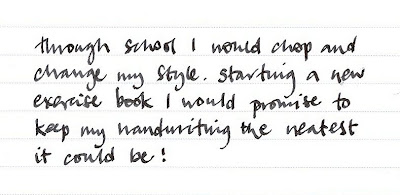 through school I would chop and
change my style. starting a new
exercise book I would promise to
keep my handwriting the neatest
it could be!